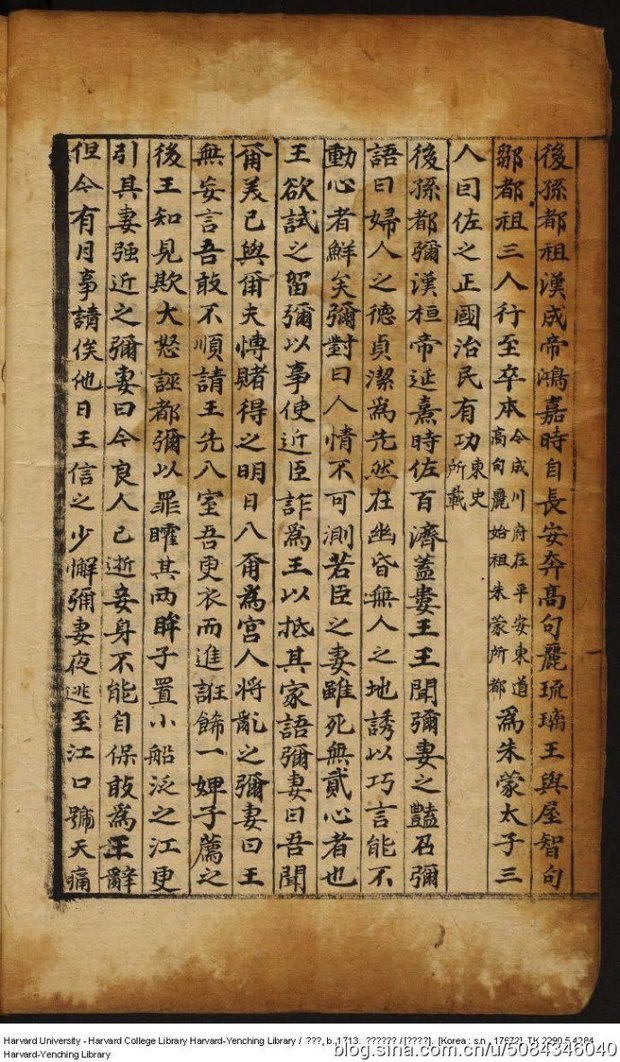 後孫都祖漢成帝鴻嘉時自長安奔高句麗琉璃王與屋智句
鄒都祖三人行至卒本今成川府在平安東道
高句麗始祖朱蒙所都
爲朱蒙太子三
人囙佐之正國治民有功東史
所載
後孫都彌漢桓帝延熹時佐百濟蓋婁王王聞彌妻之豔召彌
語曰婦人之德貞潔爲先然在幽昏無人之地誘以巧言能不
動心者鮮矣彌對曰人情不可測若臣之妻雖死無貳心者也
王欲試之留彌以事使近臣詐爲王以抵其家語彌妻曰吾聞
爾美已與爾夫博賭得之明日入爾爲宮人將亂之彌妻曰王
無妄言吾敢不順請王先入室吾更衣而進誑餙一婢子薦之
後王知見欺大怒誣都彌以罪矐其两眸子置小船泛之江更
引其妻强近之彌妻曰今良人已逝妾身不能自保敢爲王辭
但今有月事請俟他日王信之少懈彌妻夜逃至江口號天痛
Harvard University - Harvard College Library Harvard-Yenching Library / ???, b. 1713. ?????? / [????]. [Korea : s.n.,
Harvard-Yenching Library
blog.sina.com.cn/u/5084346040